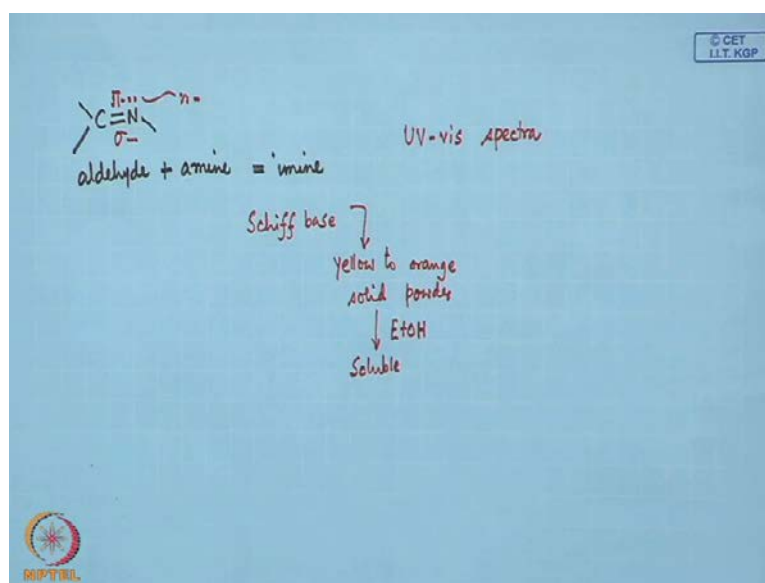 © CET
I.I.T. KGP
π... n-
C=N
σ-
UV-vis spectra
aldehyde + amine = imine
Schiff base
yellow to orange
solid powder
EtOH
Soluble
NPTEL